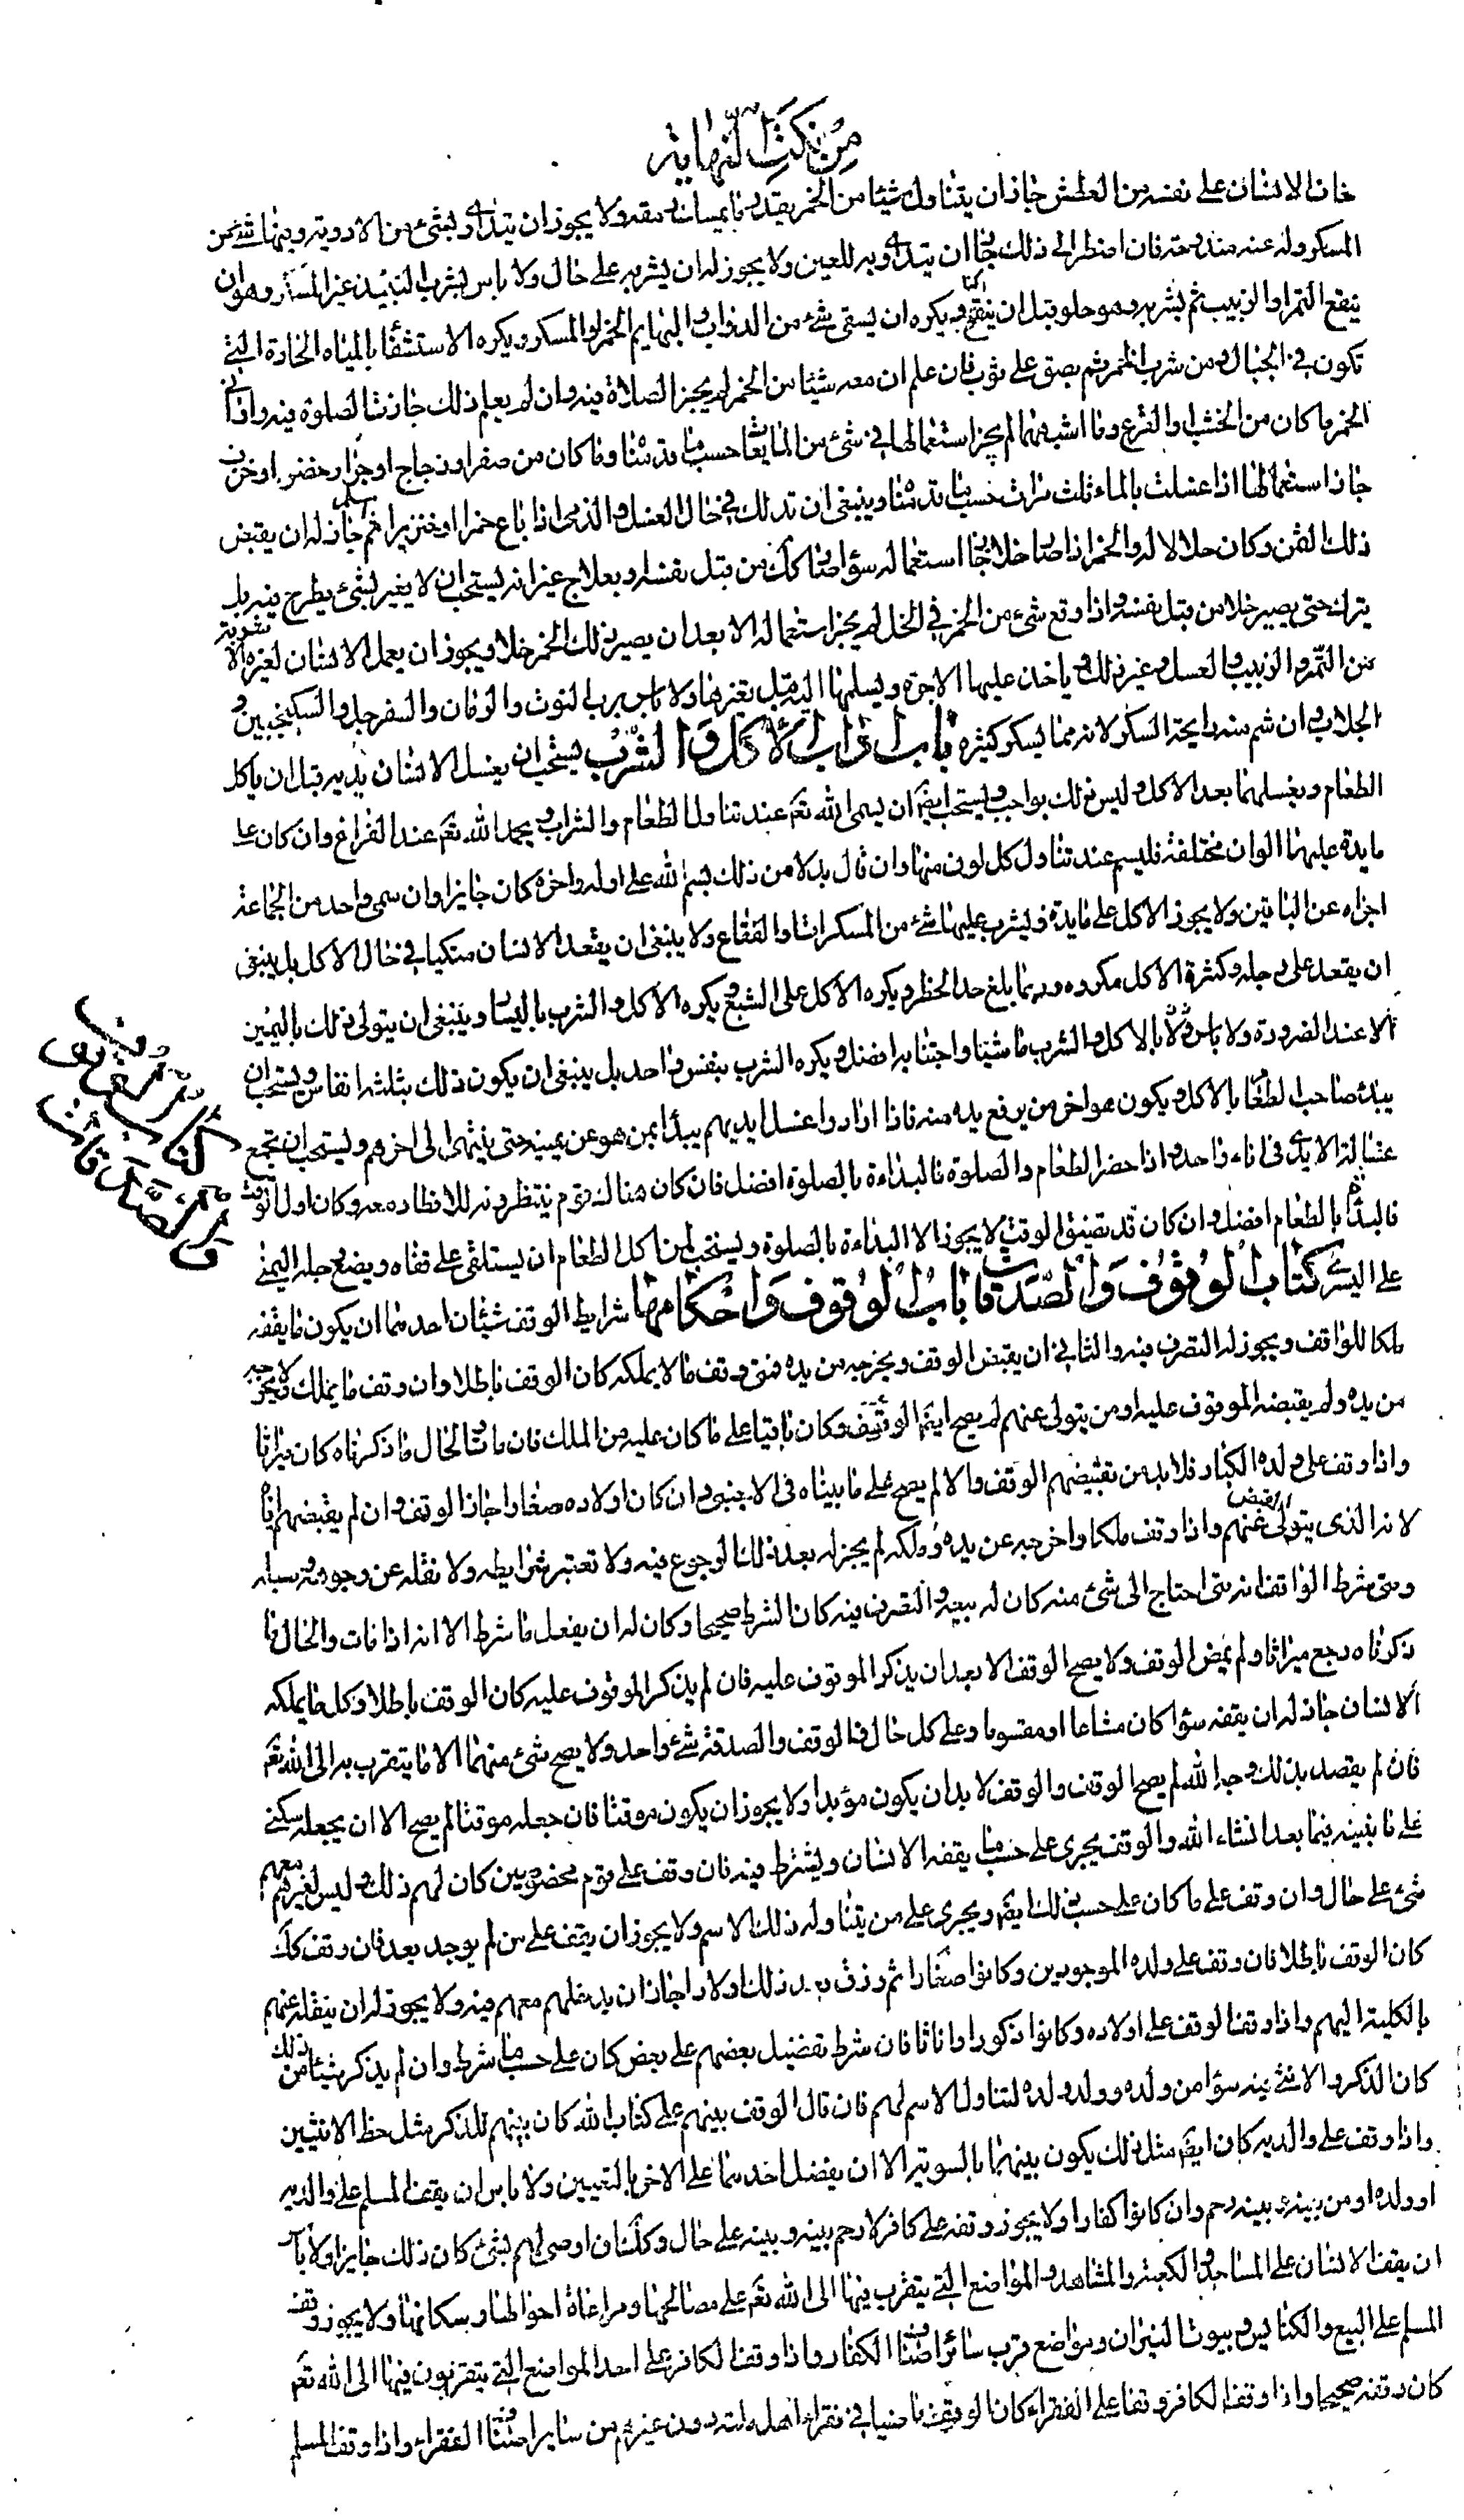 من نكت النهاية
خاف الانسان على نفسه من العطش جاز ان يتناول شيئا من الخمر بقدر ما يمسك رمقه ولا يجوز ان يتداوى بشئ من الادوية وفيها شئ من
المسكر وله عنه مندوحة فان اضطر الى ذلك جاز ان يتداوى به للعين ولا يجوز له ان يشربه على حال ولا باس بشرب النبيذ غير المسكر وهو ان
ينقع التمر او الزبيب ثم يشربه وهو حلو قبل ان يتغير ويكره ان يسقى شئ من الدواب والبهايم الخمر او المسكر ويكره الاستشفا بالمياه الحارة التي
تكون في الجبال ومن شرب الخمر ثم بصق على ثوب فان علم ان معه شيئا من الخمر لم يجز الصلاة فيه وان لم يعلم ذلك جازت الصلوة فيه واواني
الخمر ما كان من الخشب او القرع وما اشبههما لم يجز استعمالها في شئ من المايعات حسب ما قدمنا وما كان من صفر او زجاج او جرار خضر او خزف
جاز استعمالها اذا غسلت بالماء ثلث مرات حسب ما قدمنا وينبغى ان تدلك في حال الغسل والذمى اذا باع خمرا او خنزيرا ثم اسلم جاز له ان يقبض
ذلك الثمن وكان حلالا له والخمر اذا صار خلا جاز استعماله سوا صار كك من قبل نفسه او بعلاج غير انه يستحب ان لا يغير بشئ يطرح فيه بل
يترك حتى يصير خلا من قبل نفسه واذا وقع شئ من الخمر في الخل لم يجز استعماله الا بعد ان يصير ذلك الخمر خلا ويجوز ان يعمل الانسان لغيره الاشربة
من التمر والزبيب والعسل وغير ذلك وياخذ عليها الاجرة ويسلمها اليه قبل تغيرها ولا باس برب التوت والرمان والسفرجل والسكنجبين و
الجلاب وان شم منه رايحة المسكر لانه مما لا يسكر كثيره باب اداب الاكل والشرب يستحب ان يغسل الانسان يديه قبل ان ياكل
الطعام ويغسلهما بعد الاكل وليس ذلك بواجب ويستحب ايضا ان يسمى الله تعم عند تناول الطعام والشراب ويحمد الله تعم عند الفراغ وان كان على
مايدة عليها الوان مختلفة فليسم عند تناول كل لون منها وان قال بدلا من ذلك بسم الله على اوله واخره كان جايزا وان سمى واحد من الجماعة
اجزاه عن الباقين ولا يجوز الاكل على مايدة ويشرب عليها شئ من المسكرات او الفقاع ولا ينبغى ان يقعد الانسان متكيا في حال الاكل بل ينبغى
ان يقعد على رجله وكثرة الاكل مكروه وربما بلغ حد الحظر ويكره الاكل على الشبع ويكره الاكل والشرب باليسار وينبغى ان يتولى ذلك باليمين
الا عند الضرورة ولا باس بالاكل والشرب ماشيا واجتنابه افضل ويكره الشرب بنفس واحد بل ينبغى ان يكون ذلك بثلثة انفاس ويستحب ان
يبدء صاحب الطعام بالاكل ويكون هو اخر من يرفع يده منه فاذا ارادوا غسل ايديهم يبدأ بمن هو عن يمينه حتى ينتهى الى اخرهم ويستحب ان تجمع
غسالة الايدى في اناء واحد واذا حضر الطعام والصلوة فالبداءة بالصلوة افضل فان كان هناك قوم ينتظرونه للافطار معه وكان اول الوقت
فالبداءة بالطعام افضل وان كان قد تضيق الوقت لا يجوز الا البداءة بالصلوة ويستحب لمن اكل الطعام ان يستلقى على قفاه ويضع رجله اليمنى
على اليسرى كتاب الوقوف والصدقات باب الوقوف واحكامها شرايط الوقف شيئان احدهما ان يكون ما يقفه
ملكا للواقف ويجوز له التصرف فيه والثاني ان يقبض الوقف ويخرجه من يده فمتى وقف ما لا يملكه كان الوقف باطلا وان وقف ما يملك ولا يخرجه
من يده ولم يقبضه الموقوف عليه او من يتولى عنهم لم يصح ايضا الوقف وكان باقيا على ما كان عليه من الملك فان مات والحال ما ذكرناه كان ميراثا
واذا وقف على ولده الكبار فلا بد من تقبيضهم الوقف والا لم يصح على ما بيناه في الاجنبى وان كان اولاده صغارا جاز الوقف وان لم يقبضهم اياه
لانه الذى يتولى القبض عنهم واذا وقف ملكا واخرجه عن يده وملكه لم يجز له بعد ذلك الرجوع فيه ولا تغيير شرايطه ولا نقله عن وجوهه وسبله
ومتى شرط الواقف انه متى احتاج الى شئ منه كان له بيعه والتصرف فيه كان الشرط صحيحا وكان له ان يفعل ما شرط الا انه اذا مات والحال ما
ذكرناه رجع ميراثا ولم يمض الوقف ولا يصح الوقف الا بعد ان يذكر الموقوف عليه فان لم يذكر الموقوف عليه كان الوقف باطلا وكل ما يملكه
الانسان جاز له ان يقفه سوا كان مشاعا او مقسوما وعلى كل حال فالوقف والصدقة شئ واحد ولا يصح شئ منهما الا ما يتقرب به الى الله تعم
فان لم يقصد بذلك وجه الله لم يصح الوقف والوقف لا بد ان يكون مؤبدا ولا يجوز ان يكون موقتا فان جعله موقتا لم يصح الا ان يجعله سكنى
على ما نبينه فيما بعد انشاء الله والوقف يجرى على حسب ما يقفه الانسان ويشترط فيه فان وقف على قوم مخصوصين كان لهم ذلك وليس لغيرهم معهم
شئ على حال وان وقف على ما كان على حسب ذلك ايضا ويجرى على من يتناوله ذلك الاسم ولا يجوز ان يقف على من لم يوجد بعد فان وقف كك
كان الوقف باطلا فان وقف على ولده الموجودين وكانوا صغارا ثم رزق بعد ذلك اولادا جاز ان يدخلهم معهم فيه ولا يجوز له ان ينقله عنهم
بالكلية اليهم واذا وقف الوقف على اولاده وكانوا ذكورا واناثا فان شرط تفضيل بعضهم على بعض كان على حسب ما شرط وان لم يذكر شيئا من ذلك
كان الذكر والانثى فيه سوا من ولده وولد ولده لتناول الاسم لهم فان قال الوقف بينهم على كتاب الله كان بينهم للذكر مثل حظ الانثيين
واذا وقف على والديه كان ايضا مثل ذلك يكون بينهما بالسوية الا ان يفضل احدهما على الاخر بالتعيين ولا باس ان يقف المسلم على والديه
او ولده او من بينه وبينه رحم وان كانوا كفارا ولا يجوز وقفه على كافر لا رحم بينه وبينه على حال وكك ان اوصى لهم بشئ كان ذلك جايزا ولا باس
ان يقف الانسان على المساجد والكعبة والمشاهد والمواضع التي يتقرب فيها الى الله تعم على مصالحها ومراعاة احوالها وسكانها ولا يجوز وقف
المسلم على البيع والكنايس وبيوت النيران ومواضع قرب سائر اصناف الكفار واذا وقف الكافر على احد المواضع التي يتقربون فيها الى الله تعم
كان وقفه صحيحا واذا وقف الكافر وقفا على الفقراء كان الوقف ماضيا في فقراء اهل ملته دون غيرهم من ساير اصناف الفقراء واذا وقف المسلم
كتاب الوقوف
والصدقات